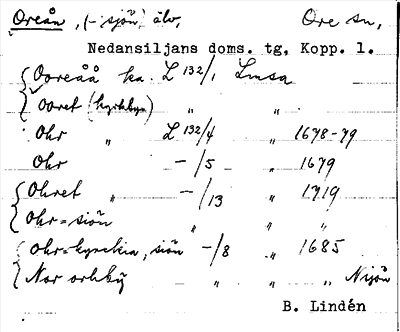 Oreån, (-sjön) älv, Ore sn,
Nedansiljans doms. tg, Kopp. l.
Ooreåå ka. L 132/1 Lmsa
Ooret (kyrkbyn) " "
Ohr " L 132/4 " 1678-79
Ohr - /5 " 1679
Ohret " - /13 " 1719
Ohr=siön " " "
Ohr=kyrckia, siön - /8 " 1685
Nor " " " Nijön
B. Lindén